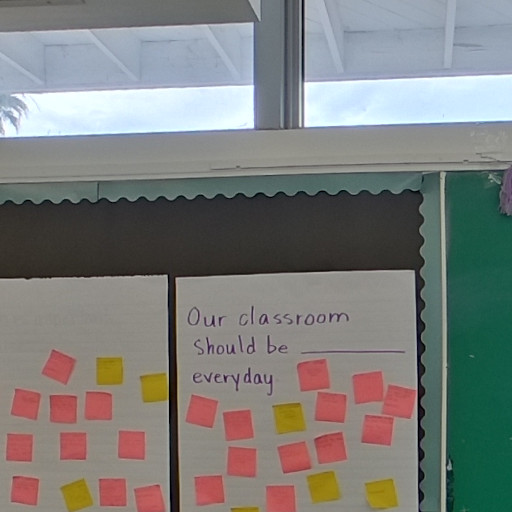 Our classroom
should be ________
everyday